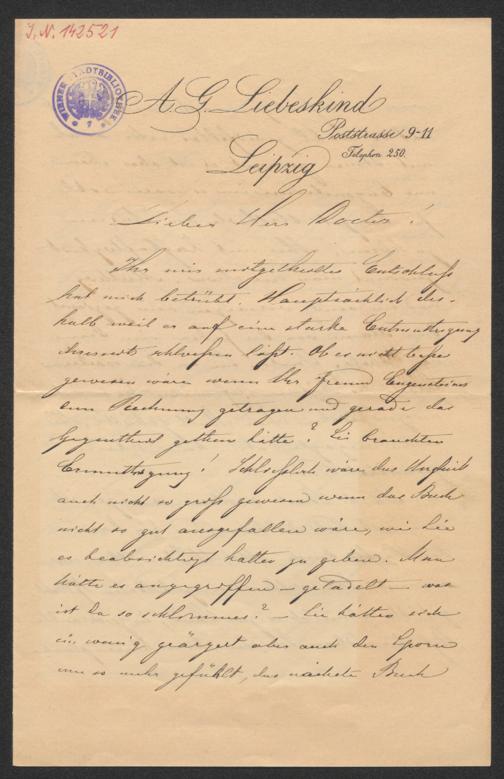 J. N. 142521
WIENER STADTBIBLIOTHEK
A. G. Liebeskind
Poststrasse 9-11
Telephon 250.
Leipzig
Lieber Herr Doctor!
Ihr mir mitgetheilter Entschluß
hat mich betrübt. Hauptsächlich des-
halb weil er auf eine starke Entmuthigung
Ihrerseits schließen läßt. Ob es nicht besser
gewesen wäre wenn Ihr Freund
dem Rechnung getragen und gerade das
Gegentheil gethan hätte? Sie brauchten
Ermuthigung! Schließlich wäre das Unglück
auch nicht so groß gewesen wenn das Buch
nicht so gut ausgefallen wäre, wie Sie
es beabsichtigt hatten zu geben. Man
hätte es angegriffen – getadelt – was
ist da so schlimmes? – Sie hätten sich
ein wenig geärgert aber auch den Sporn
um so mehr gefühlt, das nächste Buch